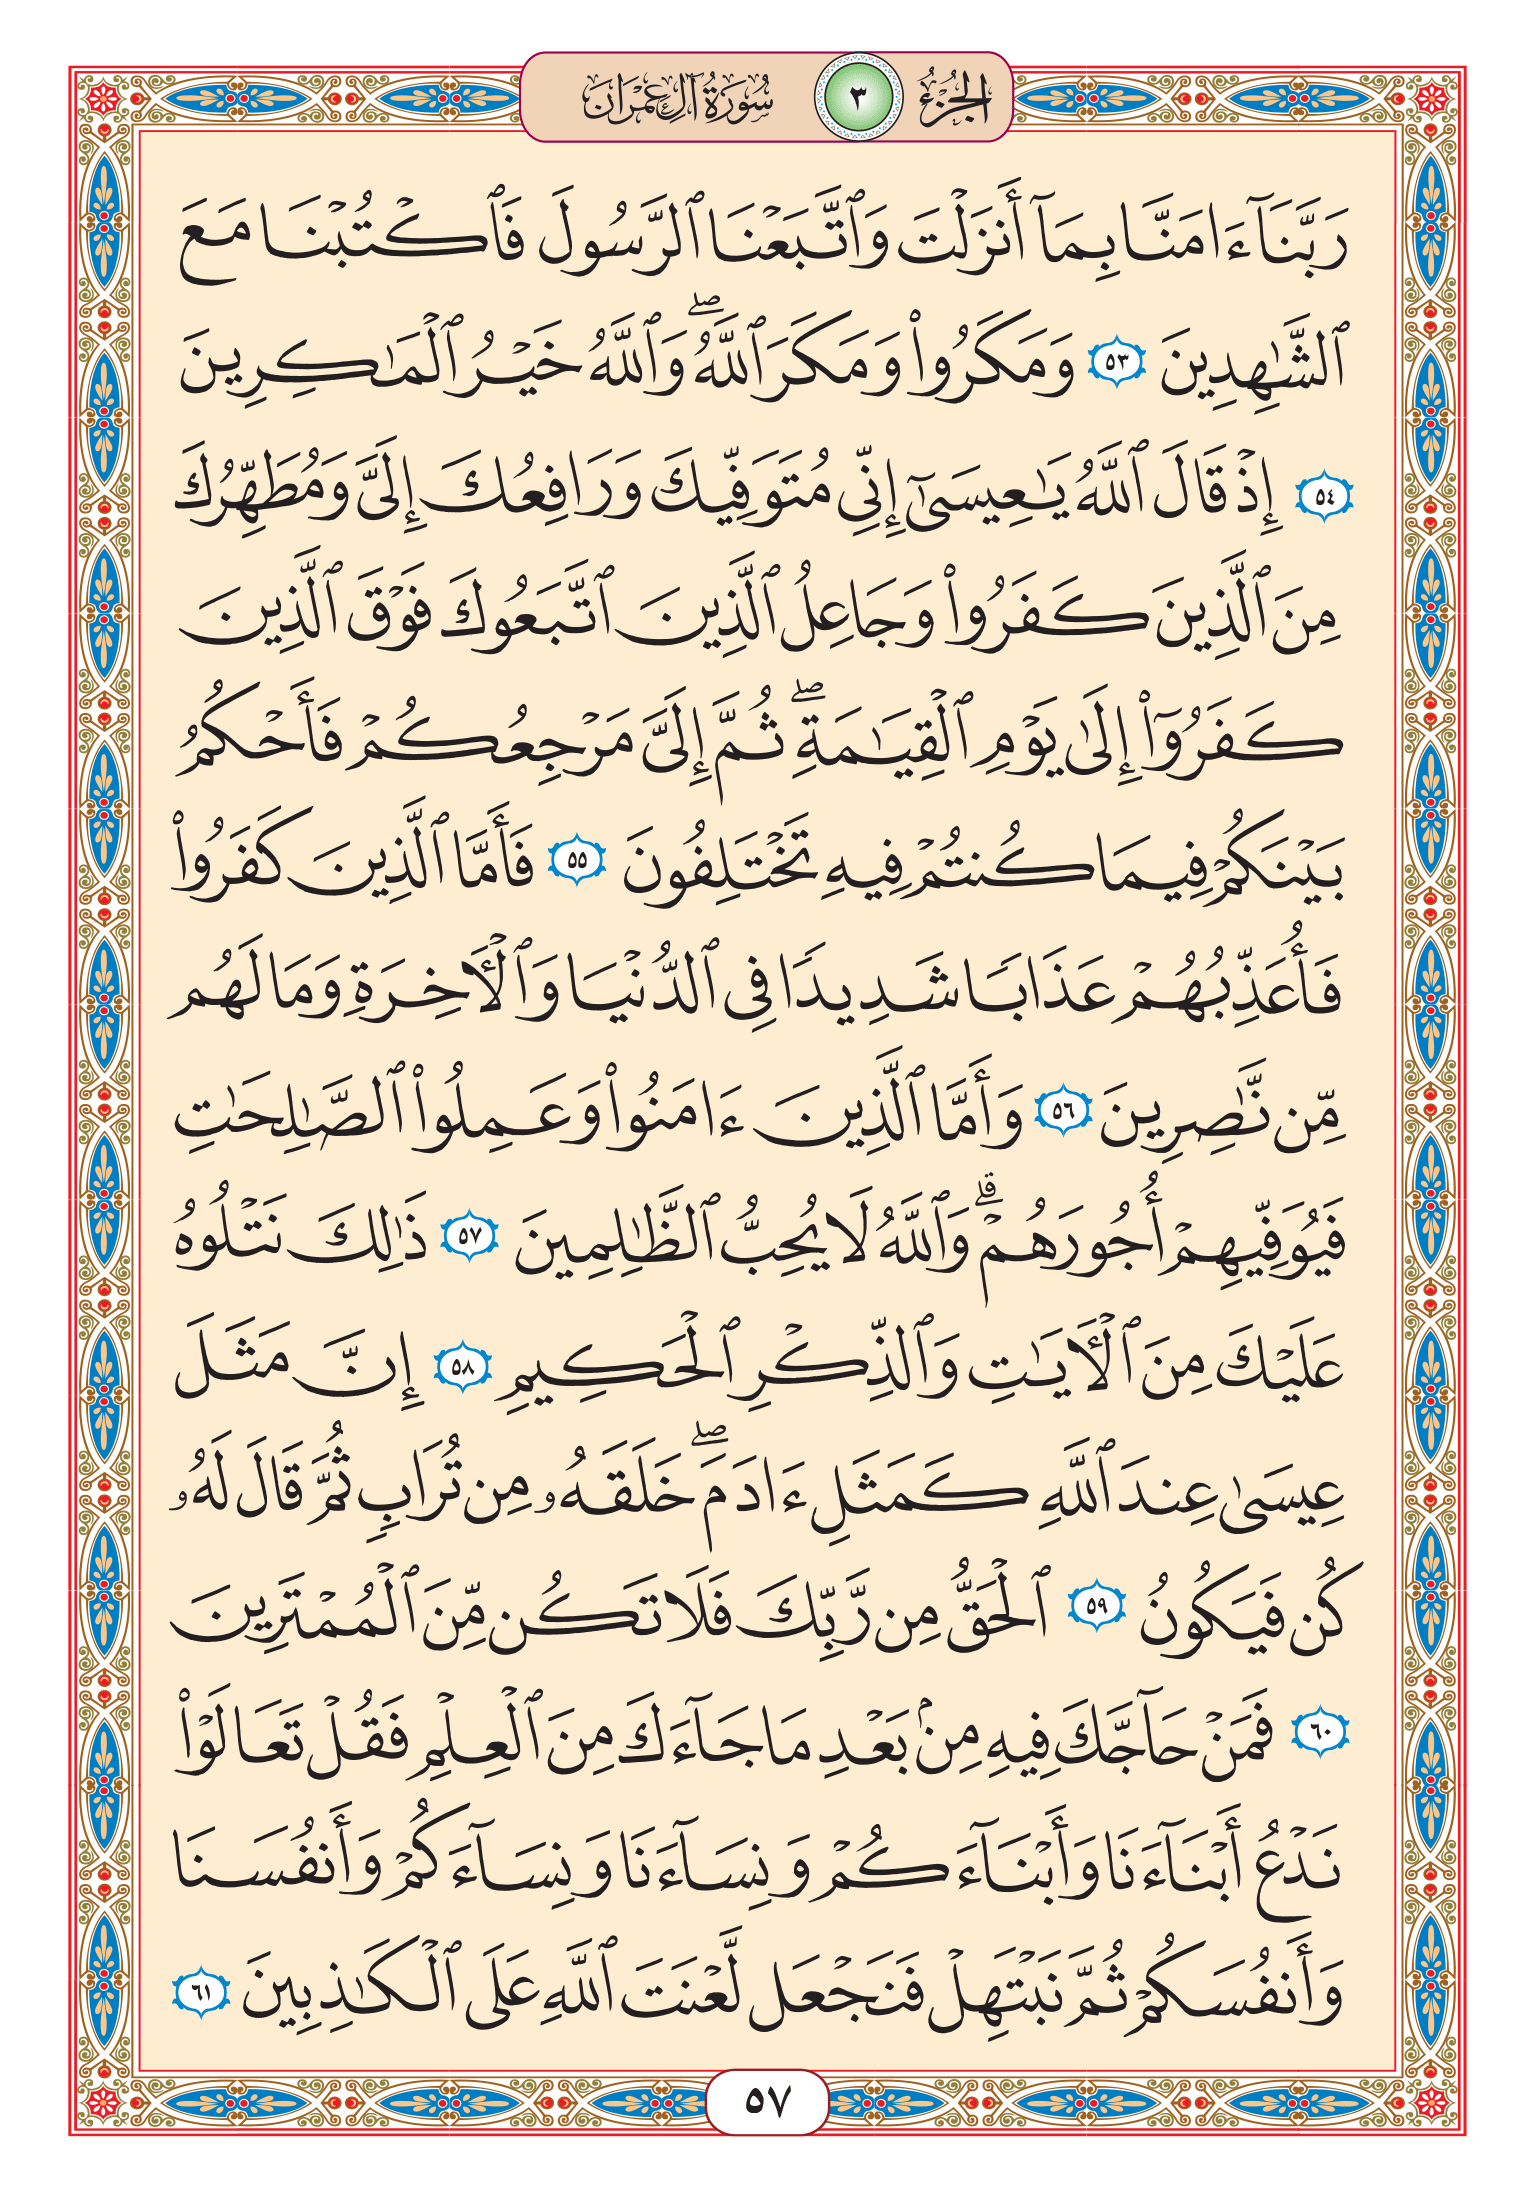 الجزء ٣ سورة آل عمران
رَبَّنَآ ءَامَنَّا بِمَآ أَنزَلۡتَ وَٱتَّبَعۡنَا ٱلرَّسُولَ فَٱكۡتُبۡنَا مَعَ
ٱلشَّٰهِدِينَ ٥٣ وَمَكَرُواْ وَمَكَرَ ٱللَّهُۖ وَٱللَّهُ خَيۡرُ ٱلۡمَٰكِرِينَ
٥٤ إِذۡ قَالَ ٱللَّهُ يَٰعِيسَىٰٓ إِنِّي مُتَوَفِّيكَ وَرَافِعُكَ إِلَيَّ وَمُطَهِّرُكَ
مِنَ ٱلَّذِينَ كَفَرُواْ وَجَاعِلُ ٱلَّذِينَ ٱتَّبَعُوكَ فَوۡقَ ٱلَّذِينَ
كَفَرُوٓاْ إِلَىٰ يَوۡمِ ٱلۡقِيَٰمَةِۖ ثُمَّ إِلَيَّ مَرۡجِعُكُمۡ فَأَحۡكُمُ
بَيۡنَكُمۡ فِيمَا كُنتُمۡ فِيهِ تَخۡتَلِفُونَ ٥٥ فَأَمَّا ٱلَّذِينَ كَفَرُواْ
فَأُعَذِّبُهُمۡ عَذَابٗا شَدِيدٗا فِي ٱلدُّنۡيَا وَٱلۡأٓخِرَةِ وَمَا لَهُم
مِّن نَّٰصِرِينَ ٥٦ وَأَمَّا ٱلَّذِينَ ءَامَنُواْ وَعَمِلُواْ ٱلصَّٰلِحَٰتِ
فَيُوَفِّيهِمۡ أُجُورَهُمۡۗ وَٱللَّهُ لَا يُحِبُّ ٱلظَّٰلِمِينَ ٥٧ ذَٰلِكَ نَتۡلُوهُ
عَلَيۡكَ مِنَ ٱلۡأٓيَٰتِ وَٱلذِّكۡرِ ٱلۡحَكِيمِ ٥٨ إِنَّ مَثَلَ
عِيسَىٰ عِندَ ٱللَّهِ كَمَثَلِ ءَادَمَۖ خَلَقَهُۥ مِن تُرَابٖ ثُمَّ قَالَ لَهُۥ
كُن فَيَكُونُ ٥٩ ٱلۡحَقُّ مِن رَّبِّكَ فَلَا تَكُن مِّنَ ٱلۡمُمۡتَرِينَ
٦٠ فَمَنۡ حَآجَّكَ فِيهِ مِنۢ بَعۡدِ مَا جَآءَكَ مِنَ ٱلۡعِلۡمِ فَقُلۡ تَعَالَوۡاْ
نَدۡعُ أَبۡنَآءَنَا وَأَبۡنَآءَكُمۡ وَنِسَآءَنَا وَنِسَآءَكُمۡ وَأَنفُسَنَا
وَأَنفُسَكُمۡ ثُمَّ نَبۡتَهِلۡ فَنَجۡعَل لَّعۡنَتَ ٱللَّهِ عَلَى ٱلۡكَٰذِبِينَ ٦١
٥٧